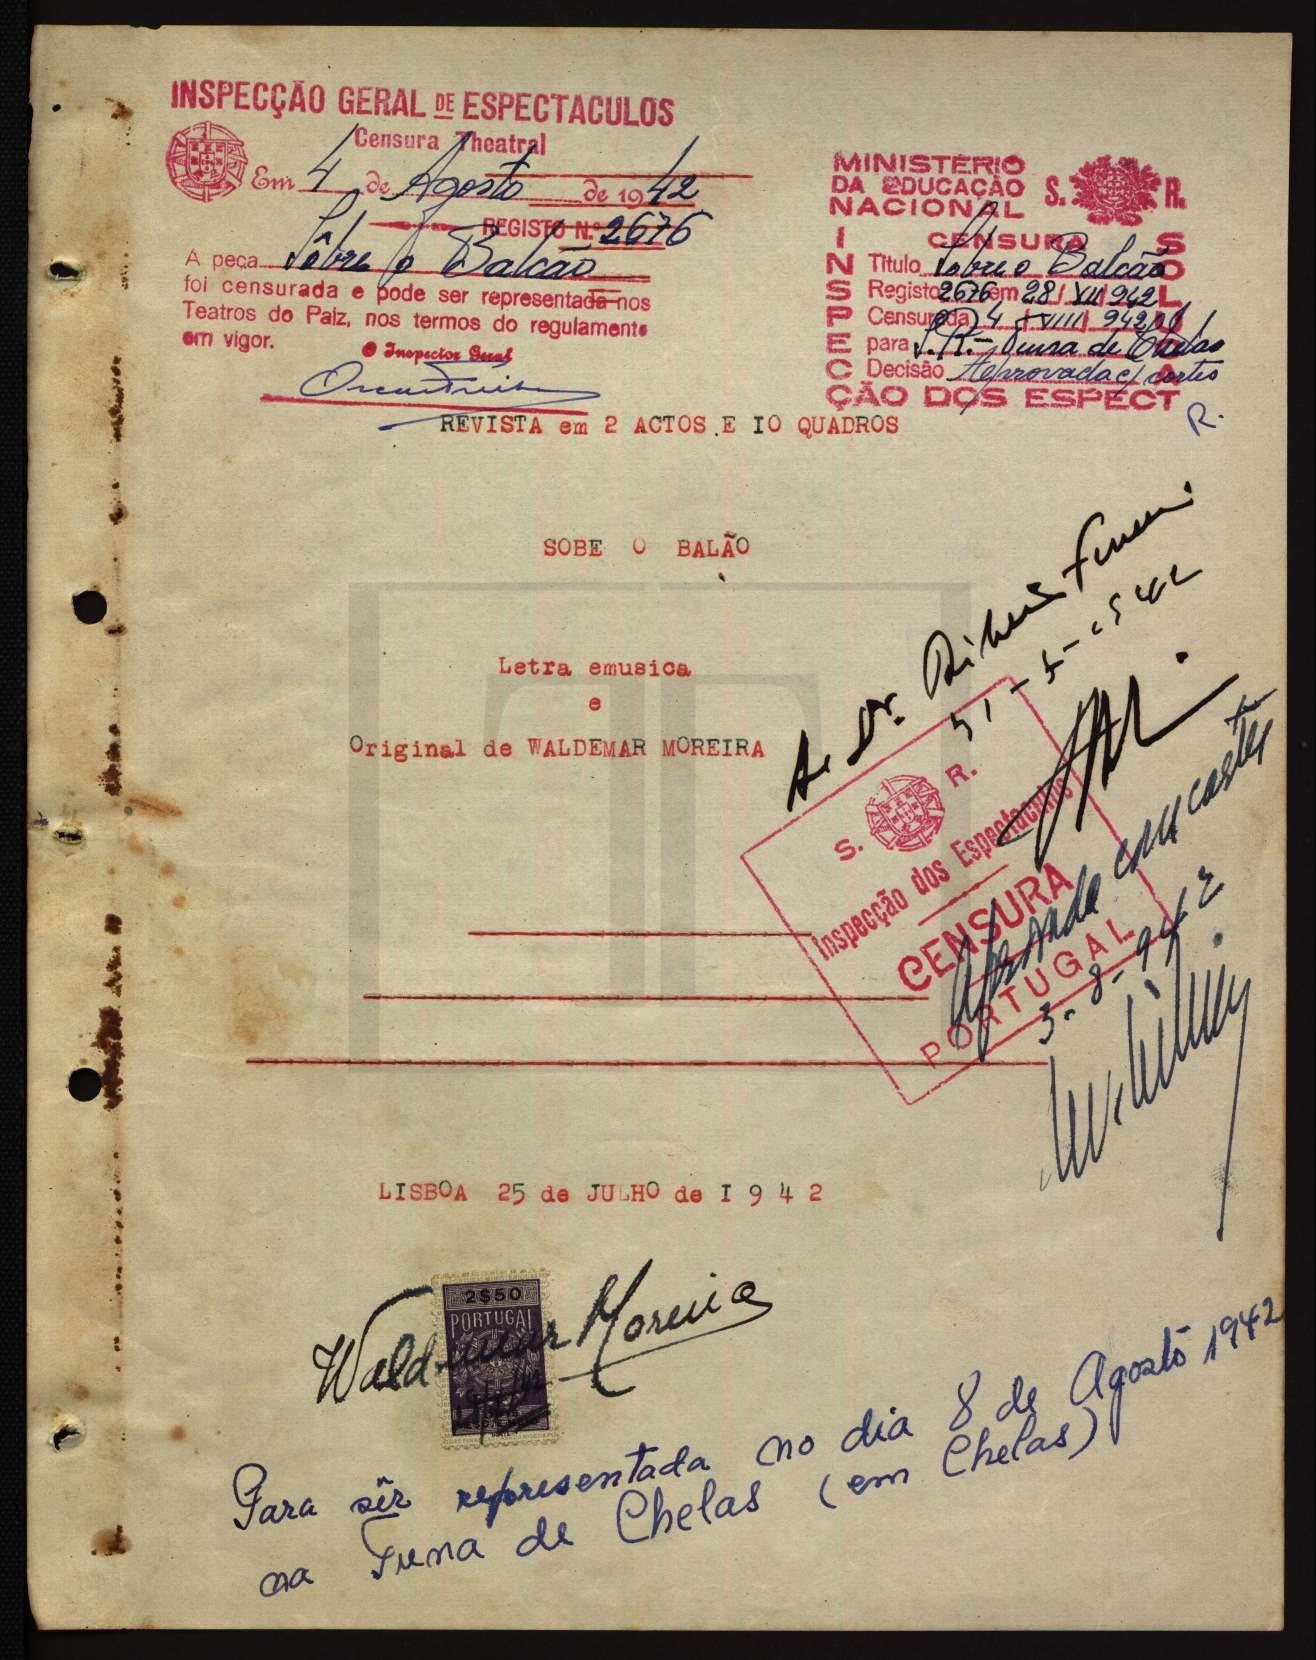 INSPECÇÃO GERAL DE ESPECTACULOS
Censura Theatral
Em 4 de Agosto de 1942
REGISTO N.º 2676
A peça Sôbre o Balcão
foi censurada e pode ser representada nos
Teatros do Paiz, nos termos do regulamento
em vigor.
O Inspector Geral
MINISTÉRIO
DA EDUCAÇÃO
NACIONAL
S. R.
CENSURA
INSPECÇÃO DOS ESPECT
Titulo Sobre o Balcão
Registo 2676 em 28 / VII / 942
Censurada 4 / VIII / 942
para S.R. - Tuna de Chelas
Decisão Aprovada c/ cortes
R.
REVISTA em 2 ACTOS E IO QUADROS
SOBE O BALÃO
Letra emusica
e
Original de WALDEMAR MOREIRA
Ao Dr. Ribeiro
S. R.
Inspecção dos Espectaculos
CENSURA
PORTUGAL
Aprovada com cortes
3-8-942
LISBOA 25 de JULHO de I 9 4 2
2$50
PORTUGAL
Waldemar Moreira
Para sêr representada no dia 8 de Agosto 1942
na Tuna de Chelas (em Chelas)